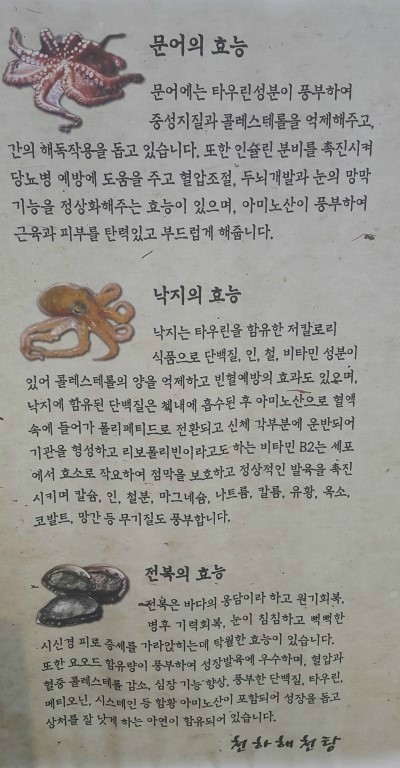 문어의 효능
문어에는 타우린성분이 풍부하여
중성지질과 콜레스테롤을 억제해주고,
간의 해독작용을 돕고 있습니다. 또한 인슐린 분비를 촉진시켜
당뇨병 예방에 도움을 주고 혈압조절, 두뇌개발과 눈의 망막
기능을 정상화해주는 효능이 있으며, 아미노산이 풍부하여
근육과 피부를 탄력있고 부드럽게 해줍니다.
낙지의 효능
낙지는 타우린을 함유한 저칼로리
식품으로 단백질, 인, 철, 비타민 성분이
있어 콜레스테롤의 양을 억제하고 빈혈예방의 효과도 있으며,
낙지에 함유된 단백질은 체내에 흡수된 후 아미노산으로 혈액
속에 들어가 폴리페티드로 전환되고 신체 각부분에 운반되어
기관을 형성하고 리보폴리빈이라고도 하는 비타민 B2는 세포
에서 효소로 작요하여 점막을 보호하고 정상적인 발육을 촉진
시키며 칼슘, 인, 철분, 마그네슘, 나트륨, 칼륨, 유황, 옥소,
코발트, 망간 등 무기질도 풍부합니다.
전복의 효능
전복은 바다의 웅담이라 하고 원기회복,
병후 기력회복, 눈이 침침하고 뻑뻑한
시신경 피로 증세를 가라앉히는데 탁월한 효능이 있습니다.
또한 요오드 함유량이 풍부하여 성장발육에 우수하며, 혈압과
혈중 콜레스테롤 감소, 심장 기능 향상, 풍부한 단백질, 타우린,
메티오닌, 시스테인 등 함황 아미노산이 포함되어 성장을 돕고
상처를 잘 낫게 하는 아연이 함유되어 있습니다.
천하해천탕